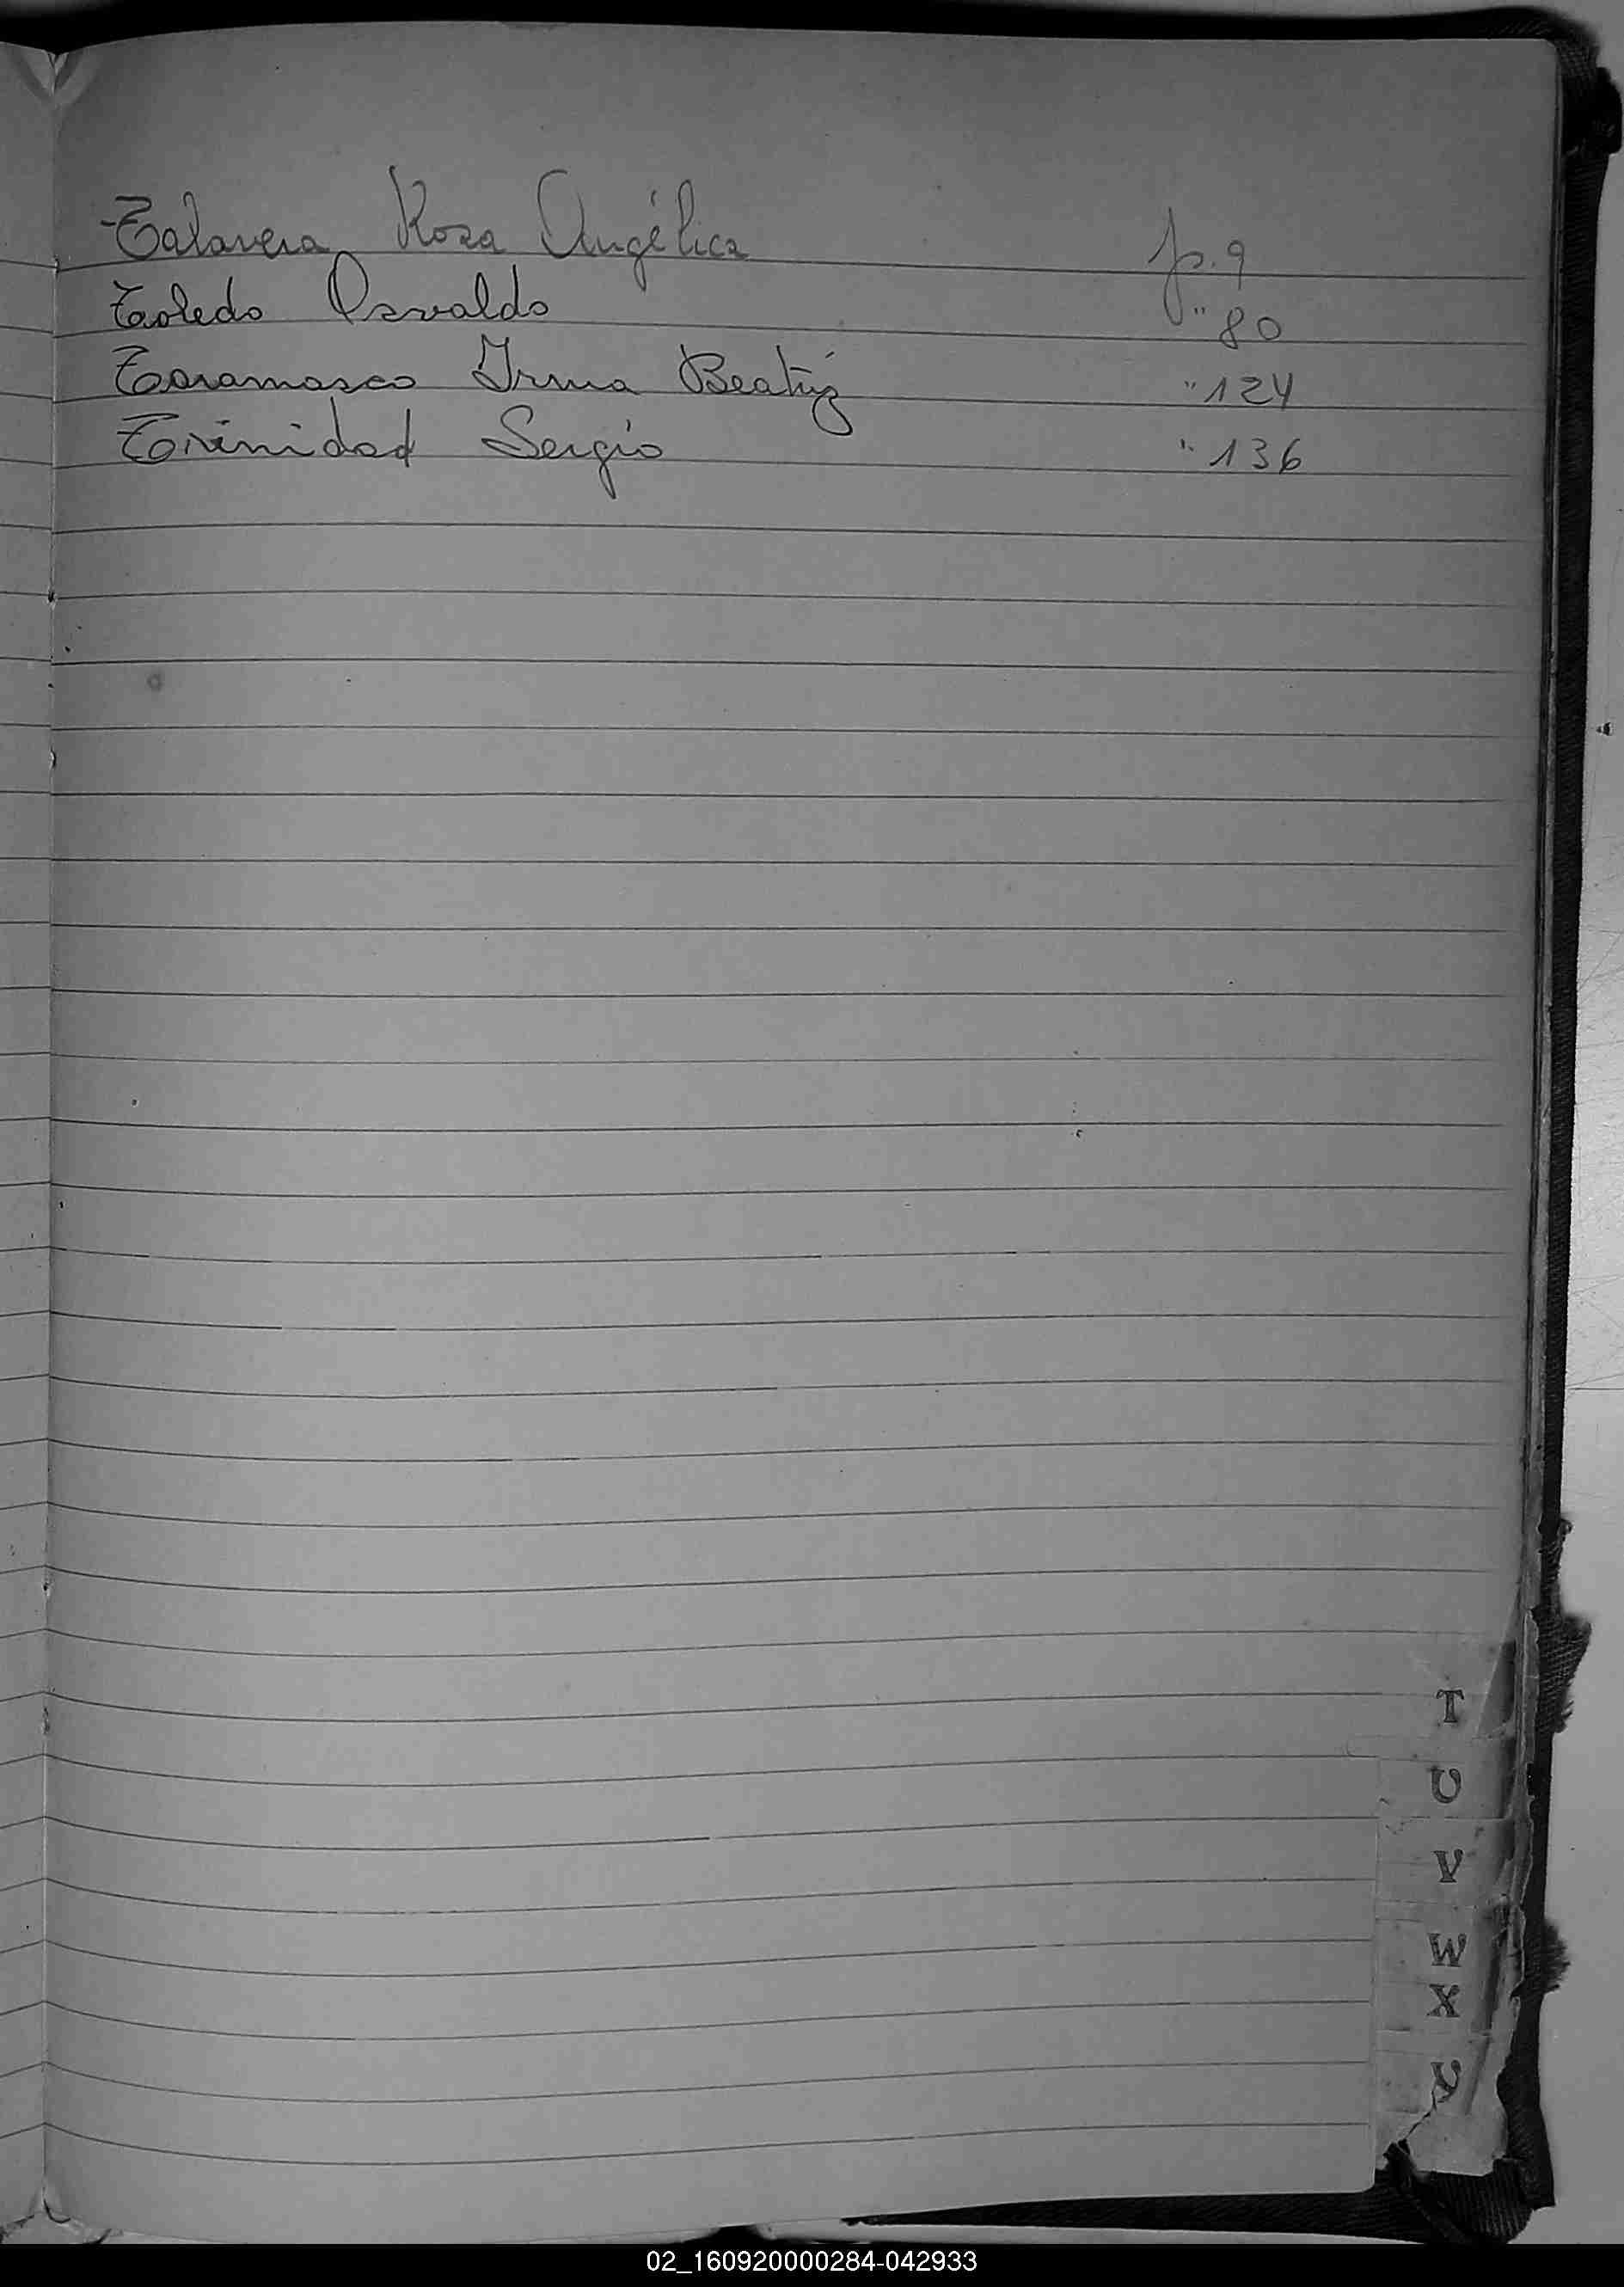 Talavera Rosa Angélica p. 9
Toledo Osvaldo " 80
Taramasco Irma Beatríz " 124
Trinidad Sergio " 136
T
U
V
W
X
Y
02_160920000284-042933